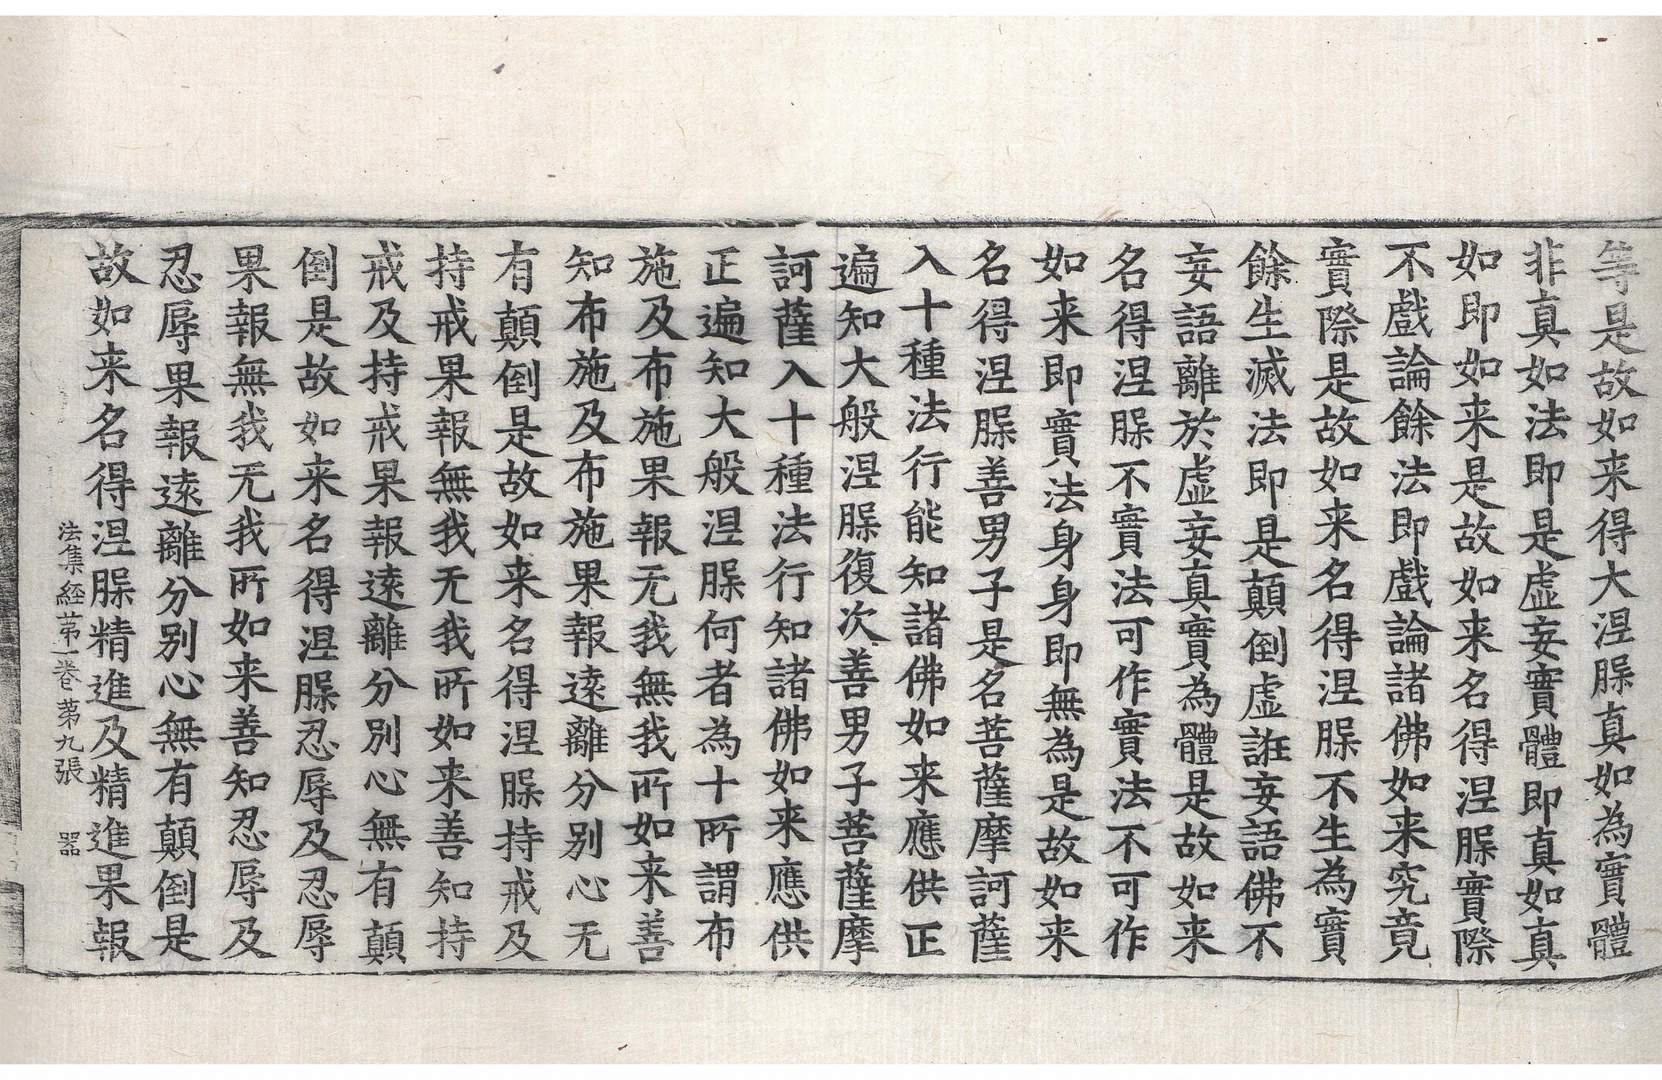 等是故如来得大涅脲真如為實體
非真如法即是虛妄實體即真如真
如即如来是故如来名得涅脲實際
不戲論餘法即戲論諸佛如来究竟
實際是故如来名得涅脲不生為實
餘生滅法即是顛倒虛誑妄語佛不
妄語離於虛妄真實為體是故如来
名得涅脲不實法可作實法不可作
如来即實法身身即無為是故如来
名得涅脲善男子是名菩薩摩訶薩
入十種法行能知諸佛如来應供正
遍知大般涅脲復次善男子菩薩摩
訶薩入十種法行知諸佛如来應供
正遍知大般涅脲何者為十所謂布
施及布施果報无我無我所如来善
知布施及布施果報遠離分別心无
有顛倒是故如来名得涅脲持戒及
持戒果報無我无我所如来善知持
戒及持戒果報遠離分別心無有顛
倒是故如来名得涅脲忍辱及忍辱
果報無我无我所如来善知忍辱及
忍辱果報遠離分別心無有顛倒是
故如来名得涅脲精進及精進果報
法集經第一卷 第九張 器